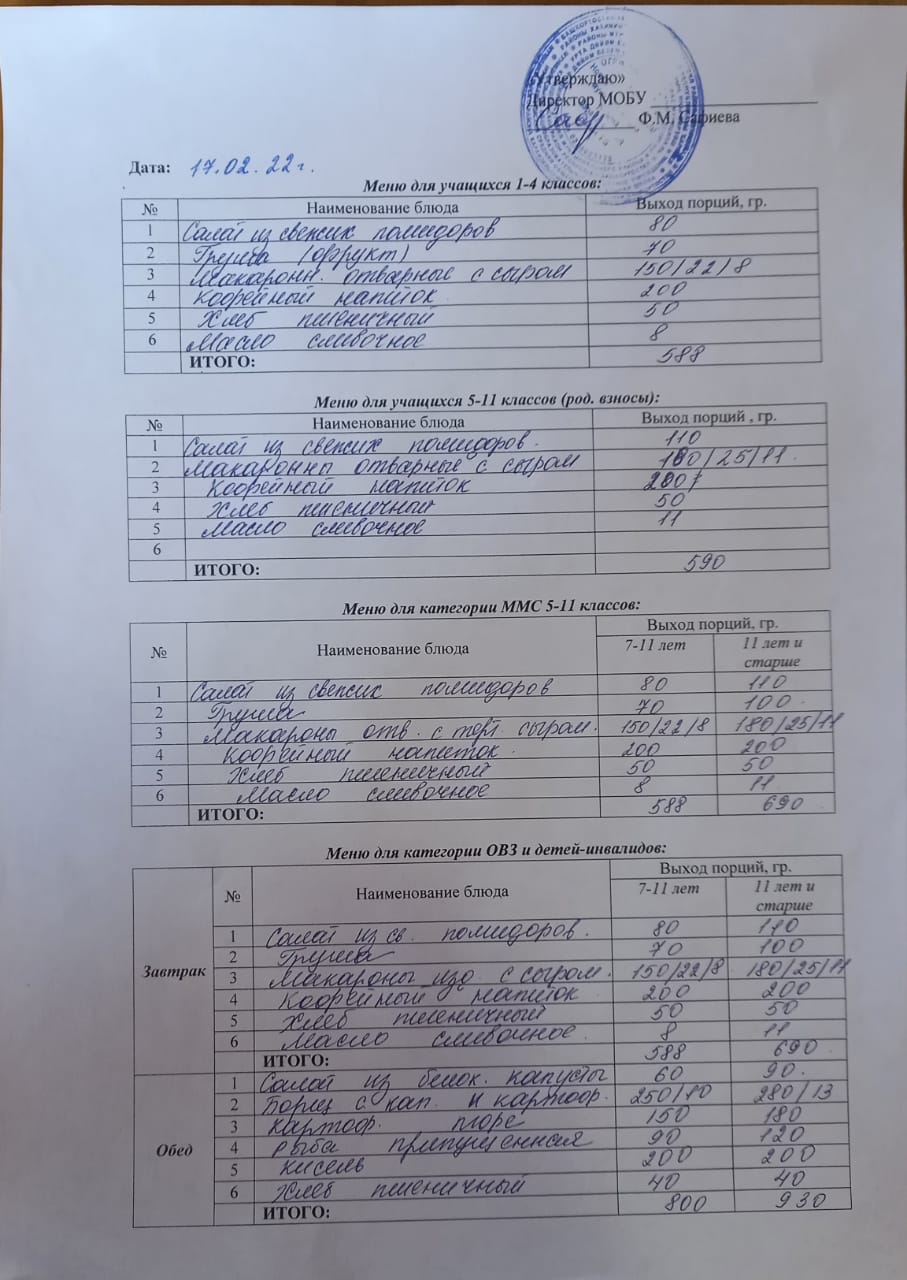 «Утверждаю»
Директор МОБУ
Ф.М. Сафиева
Дата: 17.02.22г.
Меню для учащихся 1-4 классов:
№ Наименование блюда Выход порций, гр.
1 Салат из свежих помидоров 80
2 Груша (фрукт) 70
3 Макаронн. отварные с сыром 150/22/8
4 Кофейный напиток 200
5 Хлеб пшеничный 50
6 Масло сливочное 8
ИТОГО: 588
Меню для учащихся 5-11 классов (род. взносы):
№ Наименование блюда Выход порций , гр.
1 Салат из свежих помидоров. 110
2 Макаронны отварные с сыром 180/25/11.
3 Кофейный напиток 200
4 Хлеб пшеничный 50
5 Масло сливочное 11
6
ИТОГО: 590
Меню для категории ММС 5-11 классов:
№ Наименование блюда Выход порций, гр.
7-11 лет 11 лет и старше
1 Салат из свежих помидоров 80 110
2 Груша 70 100
3 Макароны отв. с терт. сыром. 150/22/8 180/25/11
4 Кофейный напиток. 200 200
5 Хлеб пшеничный 50 50
6 Масло сливочное 8 11
ИТОГО: 588 690
Меню для категории ОВЗ и детей-инвалидов:
№ Наименование блюда Выход порций, гр.
7-11 лет 11 лет и старше
Завтрак
1 Салат из св. помидоров. 80 110
2 Груша 70 100
3 Макароны с сыром. 150/22/8 180/25/11
4 Кофейный напиток 200 200
5 Хлеб пшеничный 50 50
6 Масло сливочное 8 11
ИТОГО: 588 690
Обед
1 Салат из белок. капусты 60 90.
2 Борщ с кап. и картоф. 250/10 280/13
3 Картоф. пюре 150 180
4 Рыба припущенная 90 120
5 Кисель 200 200
6 Хлеб пшеничный 40 40
ИТОГО: 800 930